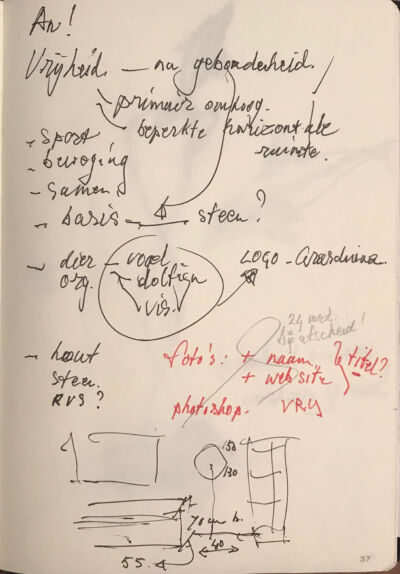 An!
Vrijheid. — na gebondenheid.
primair omhoog.
beperkte horizontale
ruimte.
- Sport
- beweging
- Samen
- basis — steen?
- dier - vogel
org. dolfijn
vis.
LOGO -
24 wed.
afscheid!
- hout
steen.
RVS?
foto's: + naam
+ website
& titel?
photoshop. VRIJ
150
130
70 cm b.
40
55.
37